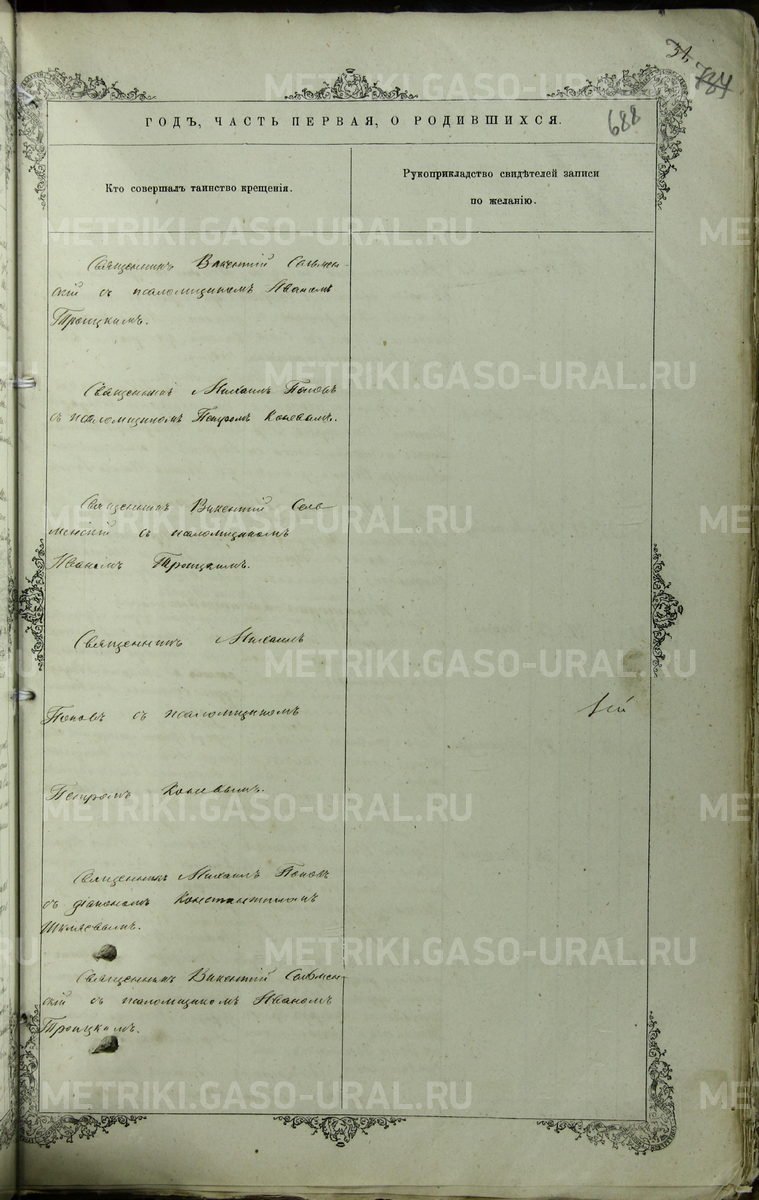 784
688
ГОДЪ, ЧАСТЬ ПЕРВАЯ, О РОДИВШИХСЯ.
Кто совершалъ таинство крещенія.
Рукоприкладство свидѣтелей записи
по желанію.
Священникъ Викентій Сельмен-
скій съ псаломщикомъ Иваномъ
Троицкимъ.
Священникъ Михаилъ Поповъ
съ псаломщикомъ Петромъ Коневымъ.
Священникъ Викентій Сель-
менскій съ псаломщикомъ
Иваномъ Троицкимъ.
Священникъ Михаилъ
Поповъ съ псаломщикомъ
Петромъ Коневымъ.
Священникъ Михаилъ Поповъ
съ діакономъ Константиномъ
Священникъ Викентій Сельмен-
скій съ псаломщикомъ Иваномъ
Троицкимъ.
METRIKI.GASO-URAL.RU